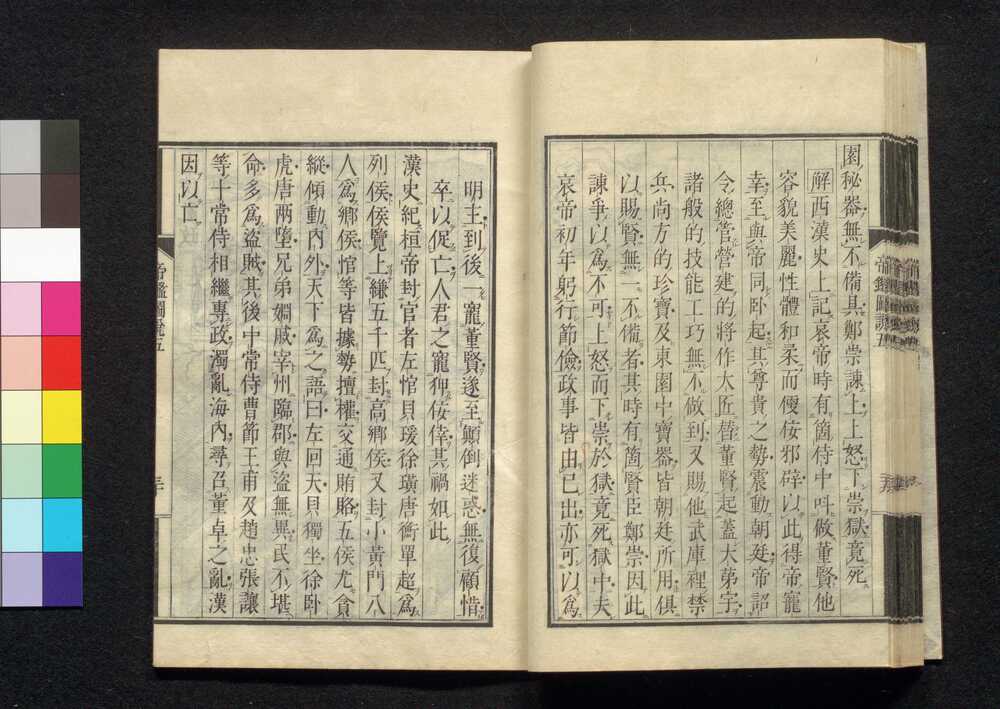 園秘器無不備具鄭崇諫上上怒下崇獄竟死
解西漢史上記哀帝時有箇侍中叫做董賢他
容貌美麗性體和柔而便佞邪辟以此得帝寵
幸至與帝同卧起其尊貴之勢震動朝廷帝詔
令總管營建的將作大匠替董賢起蓋大第宇
諸般的技能工巧無不做到又賜他武庫裡禁
兵尚方的珍寶及東園中寶器皆朝廷所用俱
以賜賢無一不備者其時有箇賢臣鄭崇因此
諫爭以為不可上怒而下崇於獄竟死獄中夫
哀帝初年躬行節儉政事皆由己出亦可以為
明主到後一寵董賢遂至顛倒迷惑無復顧惜
卒以促亡人君之寵狎佞倖其禍如此
漢史紀桓帝封宦者左悺具瑗徐璜唐衡單超為
列侯侯覽上縑五千匹封高鄉侯又封小黃門八
人為鄉侯悺等皆據勢擅權交通賄賂五侯尤貪
縱傾動內外天下為之語曰左回天具獨坐徐卧
虎唐兩墮兄弟姻戚宰州臨郡與盜無異民不堪
命多為盜賊其後中常侍曹節王甫及趙忠張讓
等十常侍相繼專政濁亂海內尋召董卓之亂漢
因以亡
帝鑑圖說五